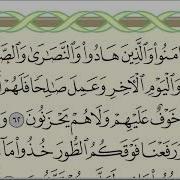 ءَامَنُوا۟ وَٱلَّذِينَ هَادُوا۟ وَٱلنَّصَـٰرَىٰ وَٱلصَّ
وَٱلْيَوْمِ ٱلْـَٔاخِرِ وَعَمِلَ صَـٰلِحًا فَلَهُمْ
خَوْفٌ عَلَيْهِمْ وَلَا هُمْ يَحْزَنُونَ ٦٢ وَ
وَرَفَعْنَا فَوْقَكُمُ ٱلطُّورَ خُذُوا۟ مَآ